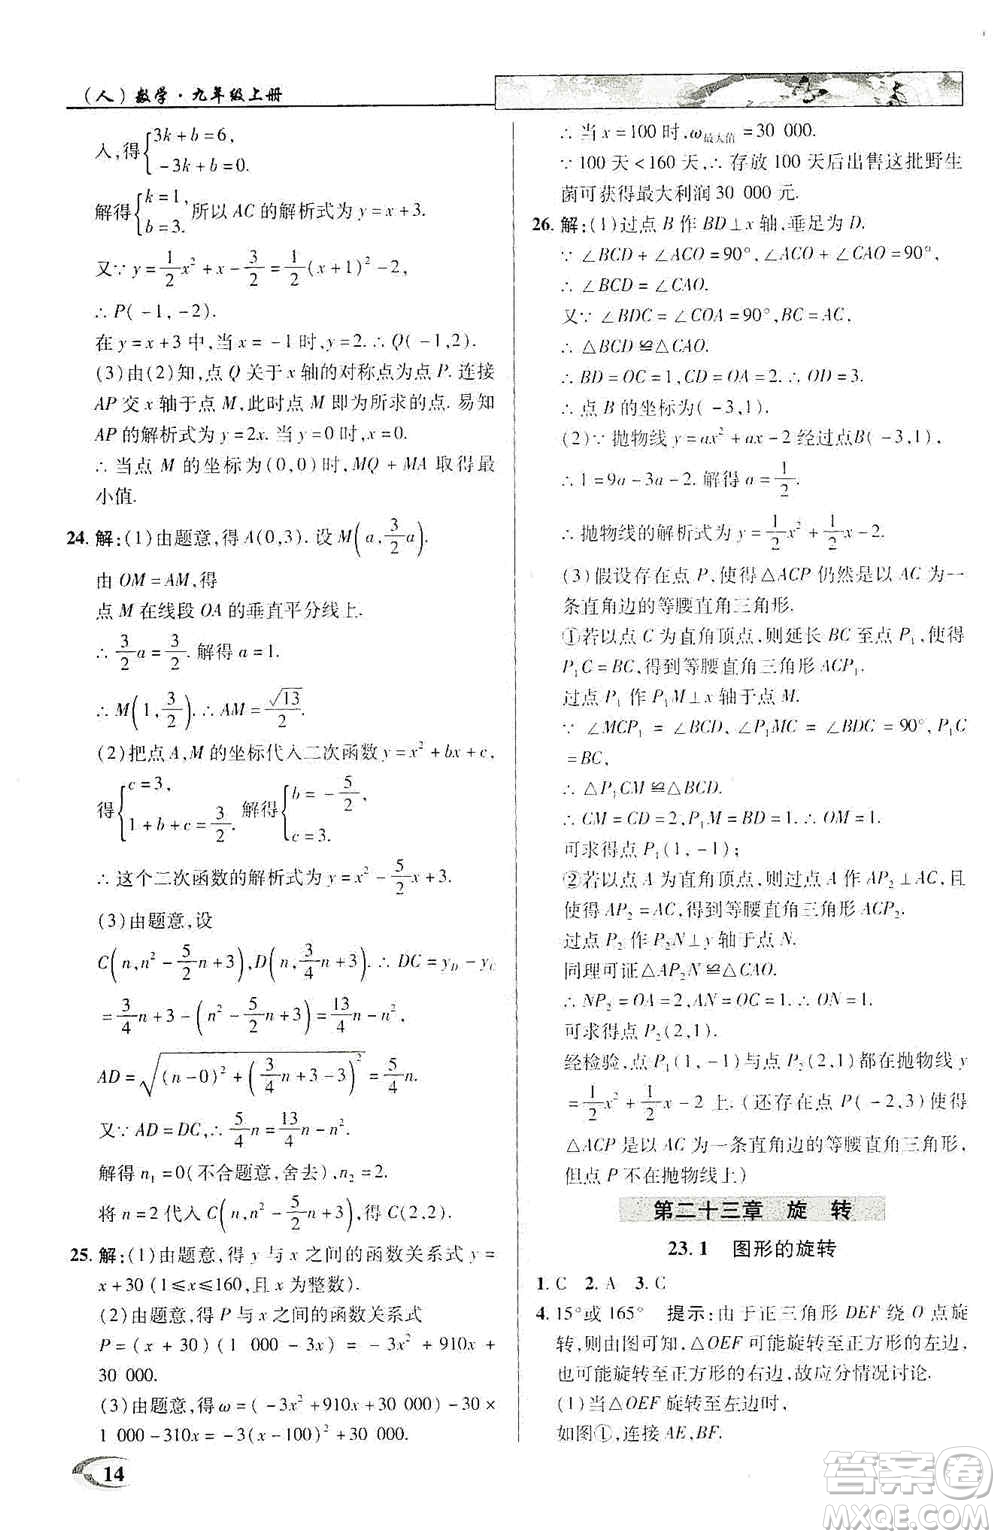 (人)数学·九年级上册
入,得{3k+b=6, -3k+b=0.
解得{k=1, b=3. 所以 AC 的解析式为 y=x+3.
又∵ y=1/2x²+x-3/2=1/2(x+1)²-2,
∴ P(-1,-2).
在 y=x+3 中,当 x=-1 时,y=2.∴ Q(-1,2).
(3)由(2)知,点 Q 关于 x 轴的对称点为点 P.连接
AP 交 x 轴于点 M,此时点 M 即为所求的点.易知
AP 的解析式为 y=2x.当 x=0 时,y=0.
∴ 当点 M 的坐标为(0,0)时,MQ+MA 取得最
小值.
24.解:(1)由题意,得 A(0,3).设 M(a,3/2a).
由 OM=AM,得
点 M 在线段 OA 的垂直平分线上.
∴ 3/2a=3/2.解得 a=1.
∴ M(1,3/2).∴ AM=√13/2.
(2)把点 A,M 的坐标代入二次函数 y=x²+bx+c,
得{c=3, 1+b+c=3/2. 解得{b=-5/2, c=3.
∴ 这个二次函数的解析式为 y=x²-5/2x+3.
(3)由题意,设
C(n,n²-5/2n+3),D(n,3/4n+3).∴ DC=y_D-y_C
=3/4n+3-(n²-5/2n+3)=13/4n-n²,
AD=√((n-0)²+(3/4n+3-3)²)=5/4n.
又∵ AD=DC,∴ 5/4n=13/4n-n².
解得 n₁=0(不合题意,舍去),n₂=2.
将 n=2 代入 C(n,n²-5/2n+3),得 C(2,2).
25.解:(1)由题意,得 y 与 x 之间的函数关系式 y=
x+30(1≤x≤160,且 x 为整数).
(2)由题意,得 P 与 x 之间的函数关系式
P=(x+30)(1 000-3x)=-3x²+910x+
30 000.
(3)由题意,得 ω=(-3x²+910x+30 000)-30×
1 000-310x=-3(x-100)²+30 000.
14
∴ 当 x=100 时,ω最大值=30 000.
∵ 100 天<160 天,∴ 存放 100 天后出售这批野生
菌可获得最大利润 30 000 元.
26.解:(1)过点 B 作 BD⊥x 轴,垂足为 D.
∵ ∠BCD+∠ACO=90°,∠ACO+∠CAO=90°,
∴ ∠BCD=∠CAO.
又∵ ∠BDC=∠COA=90°,BC=AC,
∴ △BCD≌△CAO.
∴ BD=OC=1,CD=OA=2.∴ OD=3.
∴ 点 B 的坐标为(-3,1).
(2)∵ 抛物线 y=ax²+ax-2 经过点 B(-3,1),
∴ 1=9a-3a-2.解得 a=1/2.
∴ 抛物线的解析式为 y=1/2x²+1/2x-2.
(3)假设存在点 P,使得△ACP 仍然是以 AC 为一
条直角边的等腰直角三角形.
①若以点 C 为直角顶点,则延长 BC 至点 P₁,使得
P₁C=BC,得到等腰直角三角形 ACP₁.
过点 P₁ 作 P₁M⊥x 轴于点 M.
∵ ∠MCP₁=∠BCD,∠P₁MC=∠BDC=90°,P₁C
=BC,
∴ △P₁CM≌△BCD.
∴ CM=CD=2,P₁M=BD=1.∴ OM=1.
可求得点 P₁(1,-1);
②若以点 A 为直角顶点,则过点 A 作 AP₂⊥AC,且
使得 AP₂=AC,得到等腰直角三角形 ACP₂.
过点 P₂ 作 P₂N⊥y 轴于点 N.
同理可证△AP₂N≌△CAO.
∴ NP₂=OA=2,AN=OC=1.∴ ON=1.
可求得点 P₂(2,1).
经检验,点 P₁(1,-1)与点 P₂(2,1)都在抛物线 y
=1/2x²+1/2x-2 上.(还存在点 P(-2,3)使得
△ACP 是以 AC 为一条直角边的等腰直角三角形,
但点 P 不在抛物线上)
第二十三章 旋 转
23.1 图形的旋转
1. C 2. A 3. C
4. 15°或 165° 提示:由于正三角形 DEF 绕 O 点旋
转,则由图可知,△OEF 可能旋转至正方形的左边,
也可能旋转至正方形的右边,故应分情况讨论.
(1)当△OEF 旋转至左边时,
如图①,连接 AE,BF.
答案卷
MXQE.COM